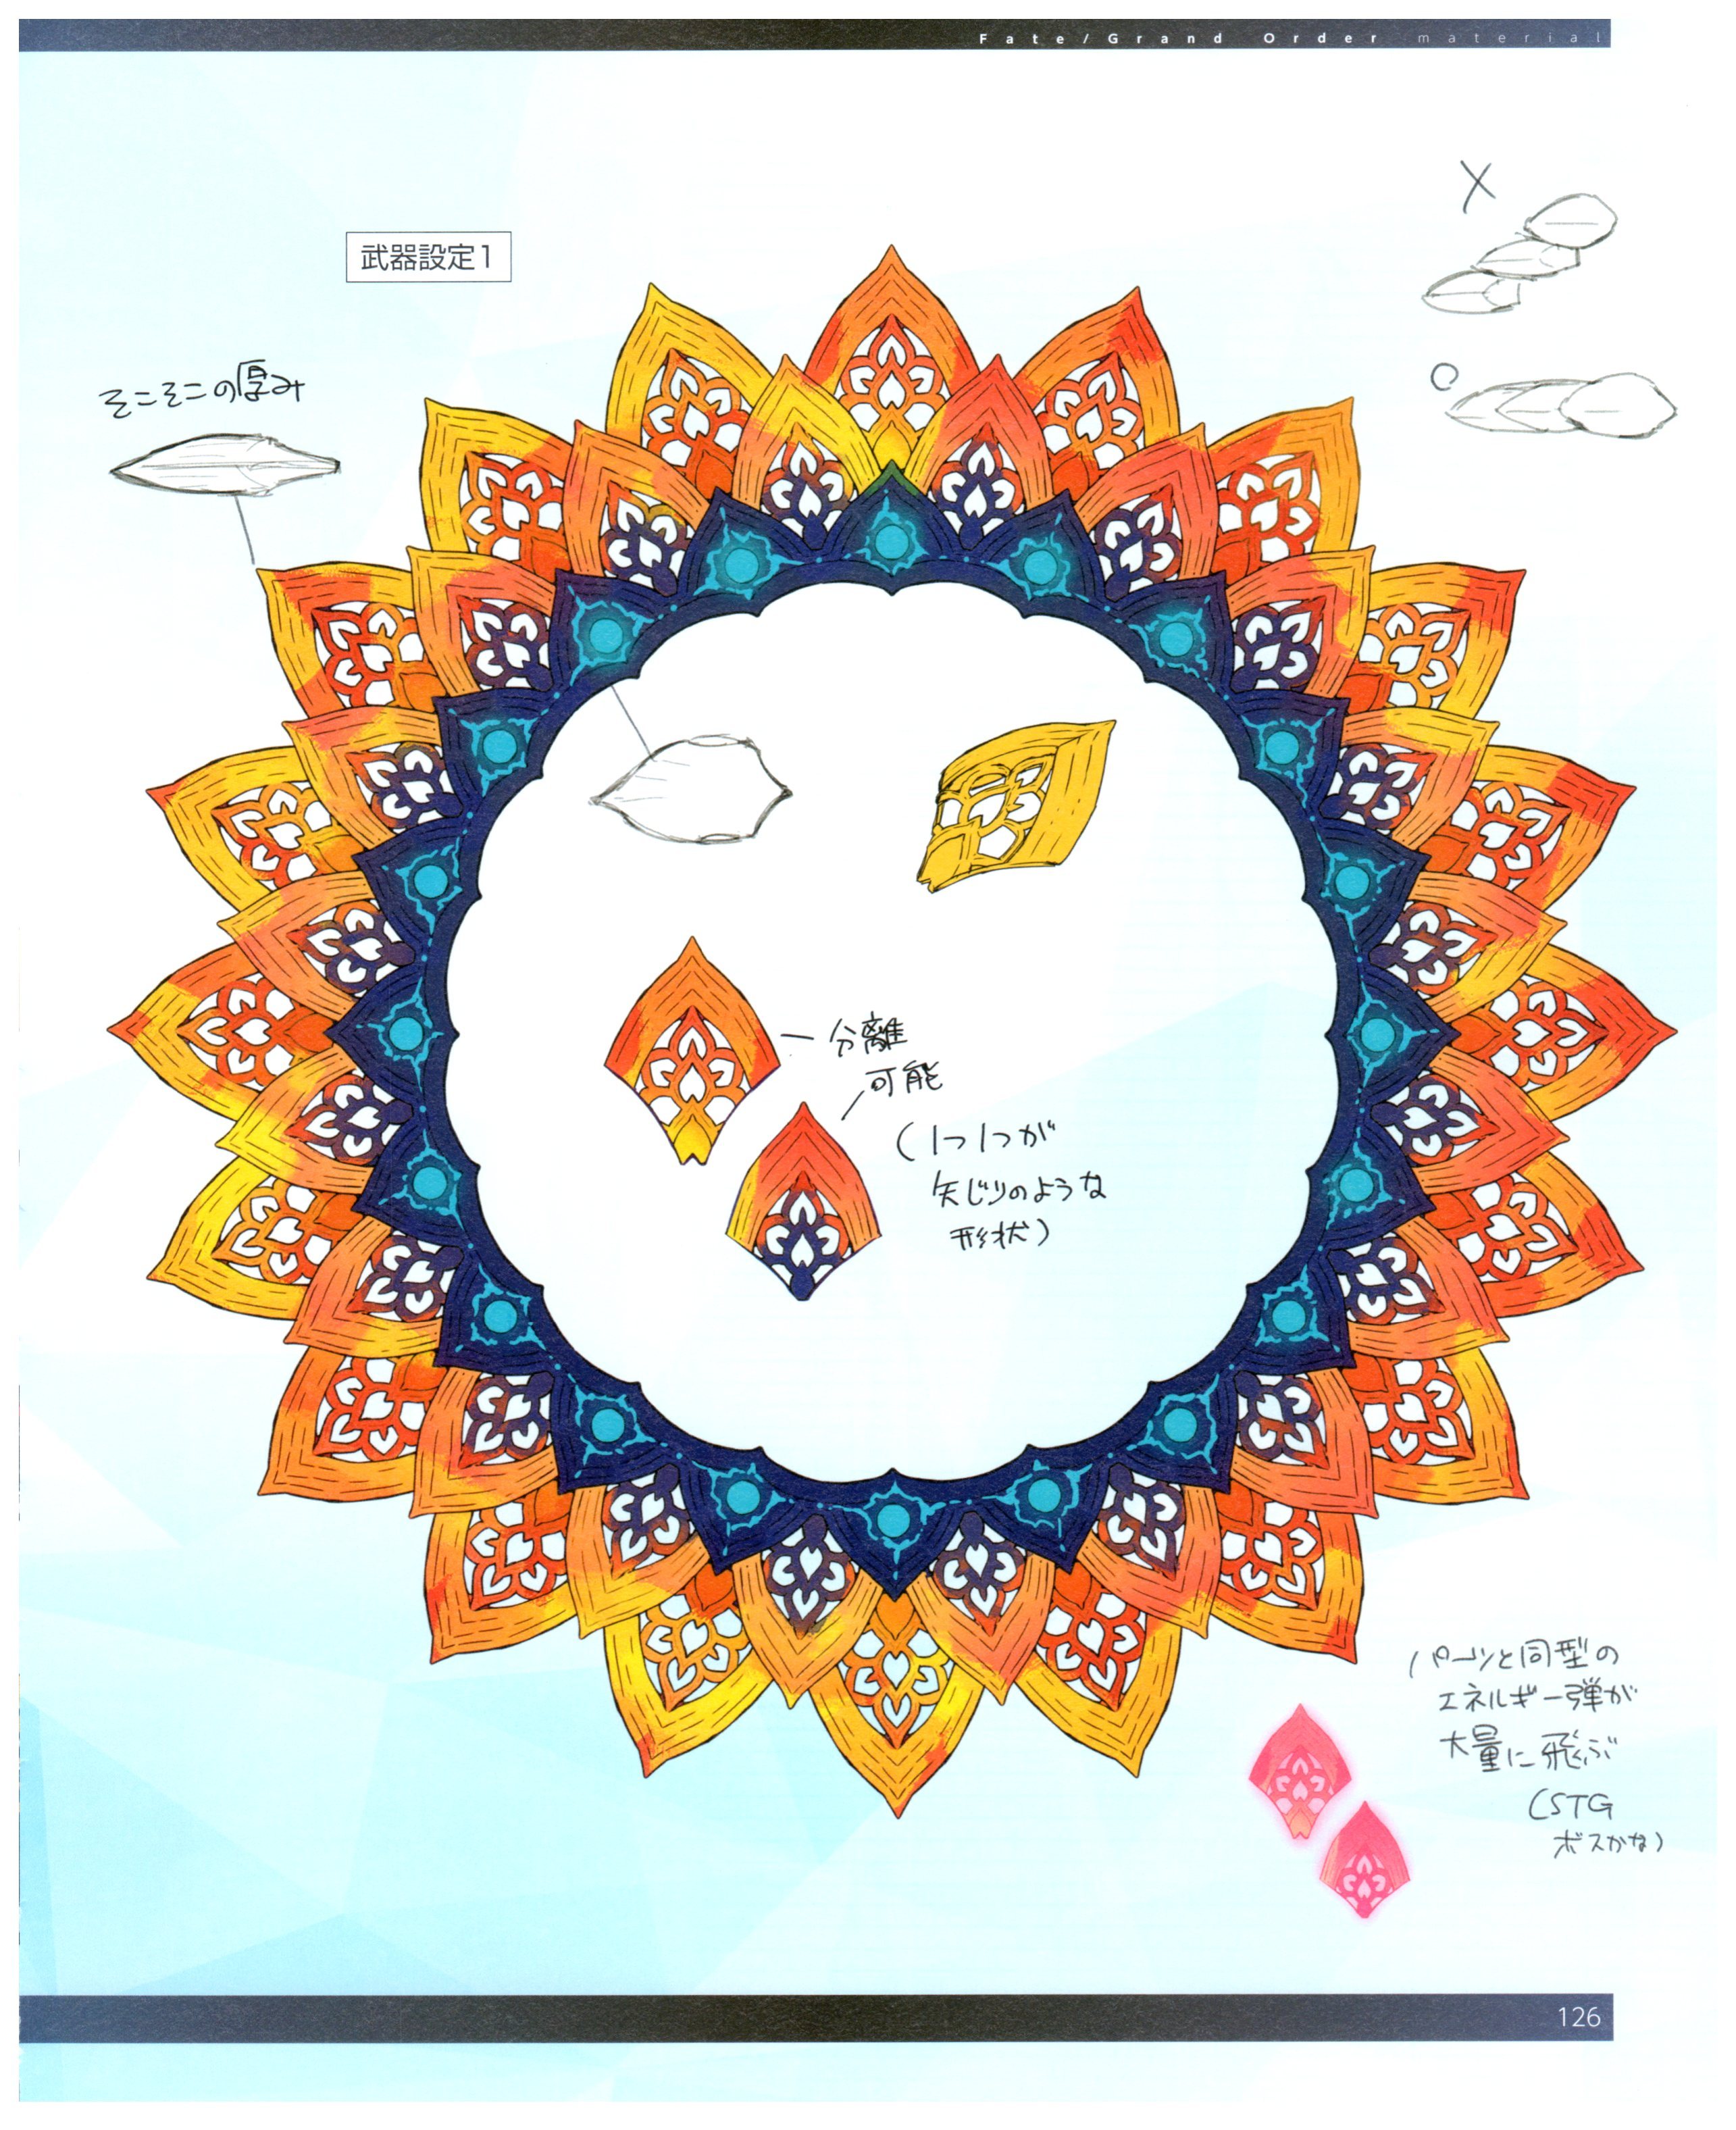 Fate/Grand Order material
武器設定1
そこそこの厚み
X
○
分離
可能
(1つ1つが
矢じりのような
形状)
パーツと同型の
エネルギー弾が
大量に飛ぶ
(STG
ボスかな)
126